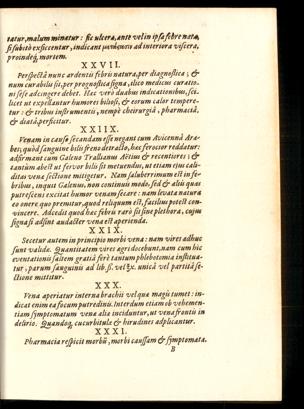 tatur, malum minatur: sic ulcera, ante vel in ipsa febre nata,
si subitò exsiccentur, indicant ad interiora viscera,
proindeq́, mortem.
XXVII.
Perspectâ nunc ardentis febris natura, per diagnostica; &
num curabilis sit, per prognostica signa, ilico medicus curatio-
ni sese adcingere debet. Hac verò duabus indicationibus, sci-
licet ut expellantur humores biliosi, & eorum calor tempere-
tur: & tribus instrumentis, nempè cheirurgiâ, pharmaciâ,
& diatâ, perficitur.
XXIIX.
Venam in causo secandam esse negant cum Avicenna Ara-
bes; quòd sanguine bilis freno detracto, hac ferocior reddatur:
adfirmant cum Galeno Trallianus Aëtius & recentiores: &
tantùm abest ut fervor bilis sit metuendus, ut etiam ejus cali-
ditas vena sectione mitigetur. Nam saluberrimum est in fe-
bribus, inquit Galenus, non continuis modò, sed & aliis quas
putrescens excitat humor venam secare: nam levata natura
eo onere quo premitur, quod reliquum est, facilius potest con-
vincere. Adcedit quod hac febris rarò sit sine plethora, cujus
signa si adsint audacter vena est aperienda.
XXIX.
Secetur autem in principio morbi vena: nam vires adhuc
sunt valida. Quantitatem vires agri docebunt, nam cum hic
eventationis saltem gratiâ ferè tantùm phlebotomia institua-
tur, parum sanguinis ad lib. unicâ vel partitâ se-
ctione mittitur.
XXX.
Vena aperiatur interna brachii vel qua magis tumet: in-
dicat enim ea focum putredinis. Interdum etiam ob vehemen-
tiam symptomatum vena alia inciduntur, ut vena frontis in
delirio. Quandoq́, cucurbitula & hirudines adplicantur.
XXXI.
Pharmacia respicit morbũ, morbi caussam & symptomata.
B